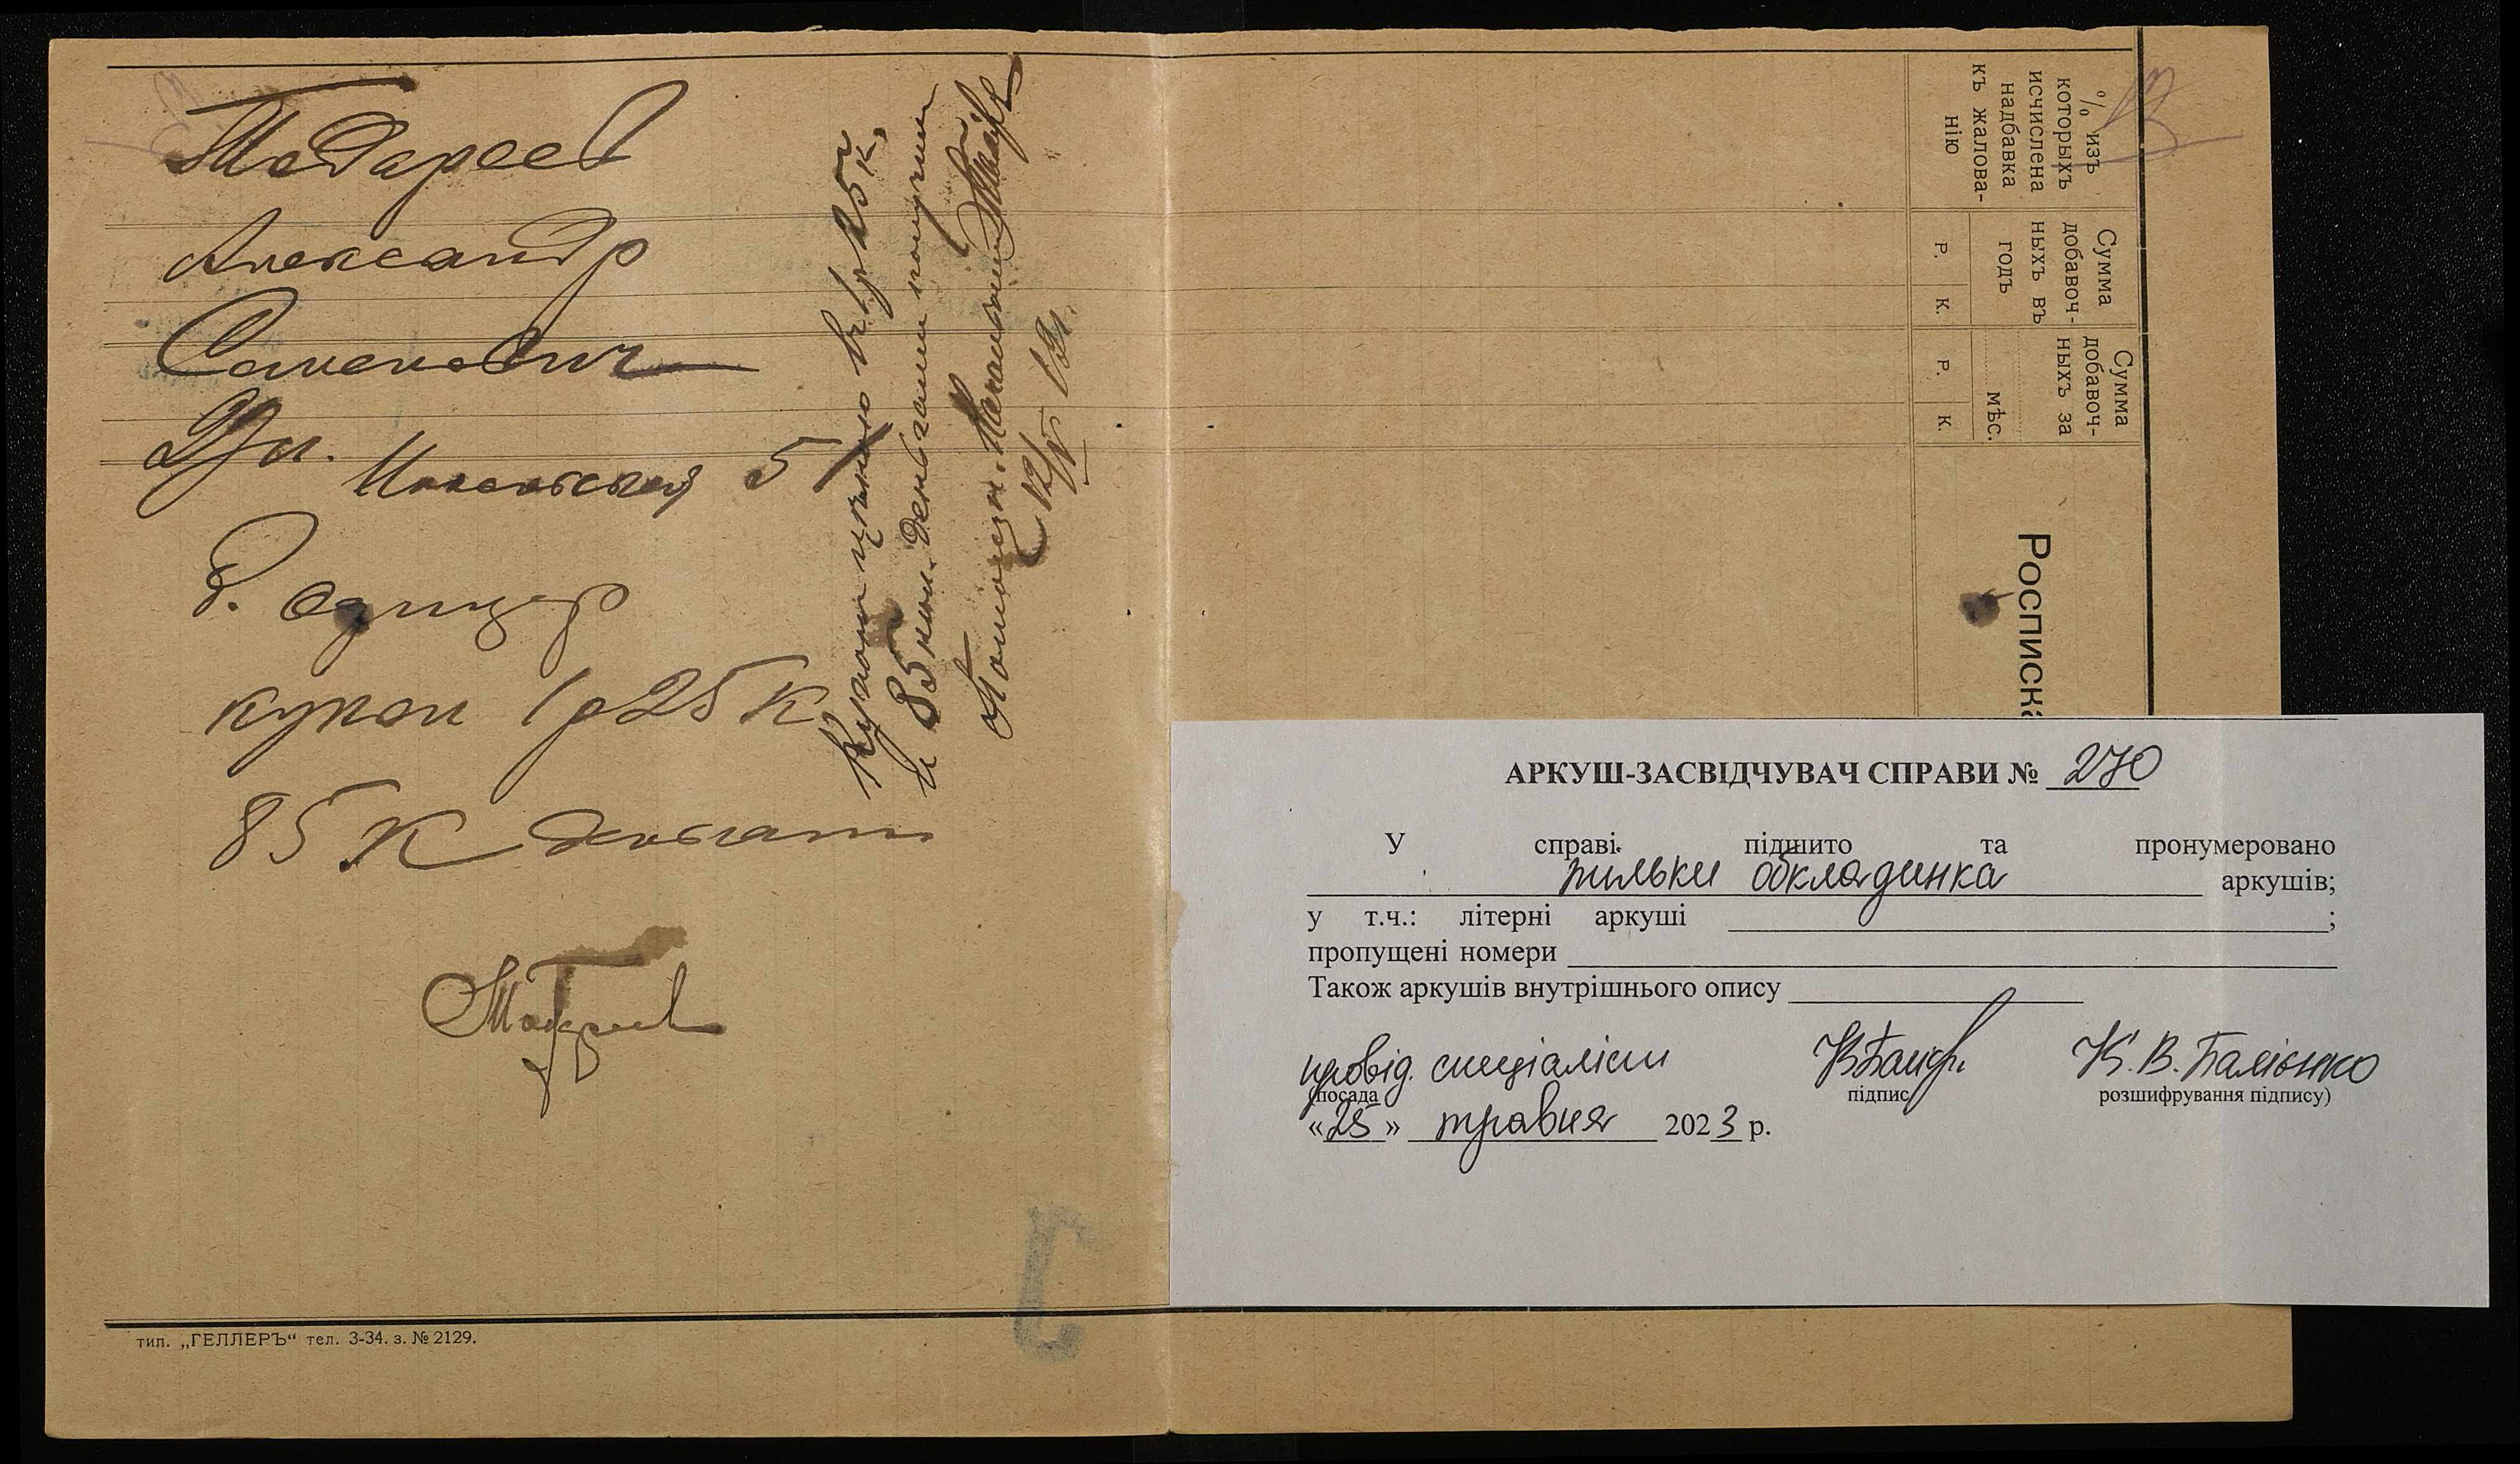 Александр
Семенович
Ул.
5
б. Офицер
купон 1р 25 К
85 К деньгами
Купон ценою в 1р 25 к.
и 85 коп. деньгами получил
Помощн.
12/V
тип. „ГЕЛЛЕРЪ“ тел. 3-34. з. № 2129.
% изъ
которыхъ
исчислена
надбавка
къ жалова-
нію
Сумма
добавоч-
ныхъ въ
годъ
Р. К.
Сумма
добавоч-
ныхъ за
мѣс.
Р. К.
Росписка
АРКУШ-ЗАСВІДЧУВАЧ СПРАВИ № 270
У справі підшито та пронумеровано
тильки обкладинка аркушів;
у т.ч.: літерні аркуші ;
пропущені номери
Також аркушів внутрішнього опису
провід. спеціаліст К. В. Балюнко
(посада підпис розшифрування підпису)
«25» травня 2023 р.